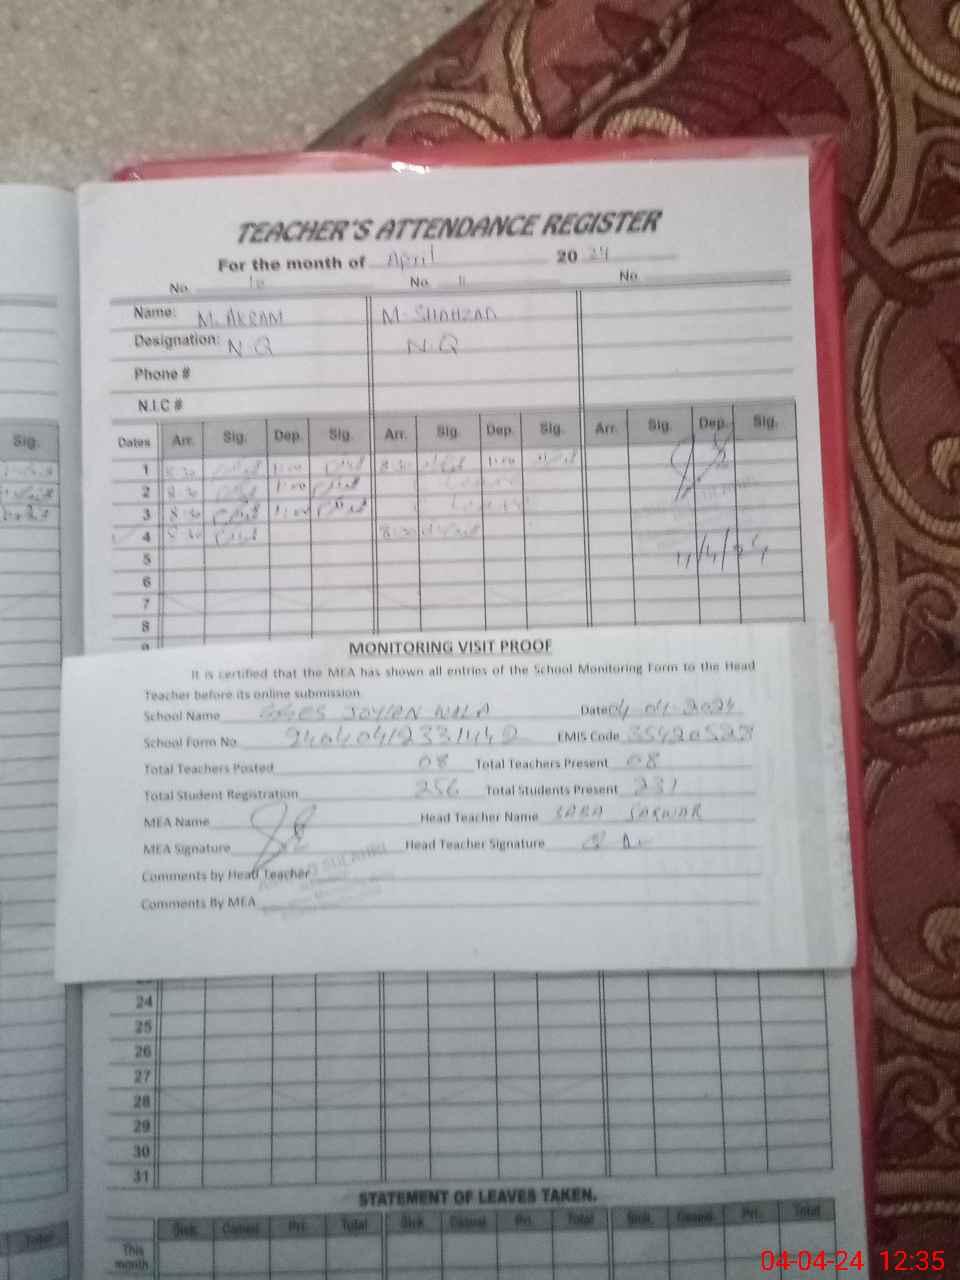 TEACHER'S ATTENDANCE REGISTER
For the month of April 2024
No. 10 No. 11 No.
Name: M. AKRAM M. SHAHZAD
Designation: N.Q N.Q
Phone #
N.I.C #
Sig.
Dates Arr. Sig. Dep. Sig. Arr. Sig. Dep. Sig. Arr. Sig. Dep. Sig.
1 8:30 1:00 8:30 1:00
2 8:30 1:00 Leave
3 8:30 1:00 Leave
4 8:30 8:30
5
6
7
8
9
MONITORING VISIT PROOF
It is certified that the MEA has shown all entries of the School Monitoring Form to the Head
Teacher before its online submission.
School Name GGES JOYIAN WALA Date 04-04-2024
School Form No EMIS Code
Total Teachers Posted 08 Total Teachers Present 08
Total Student Registration 256 Total Students Present 231
MEA Name Head Teacher Name SABA SARWAR
MEA Signature Head Teacher Signature
Comments by Head Teacher
Comments By MEA
24
25
26
27
28
29
30
31
STATEMENT OF LEAVES TAKEN.
Total Sick. Casual Pri. Total Sick. Casual Pri. Total Sick. Casual Pri. Total
This
month
04-04-24 12:35